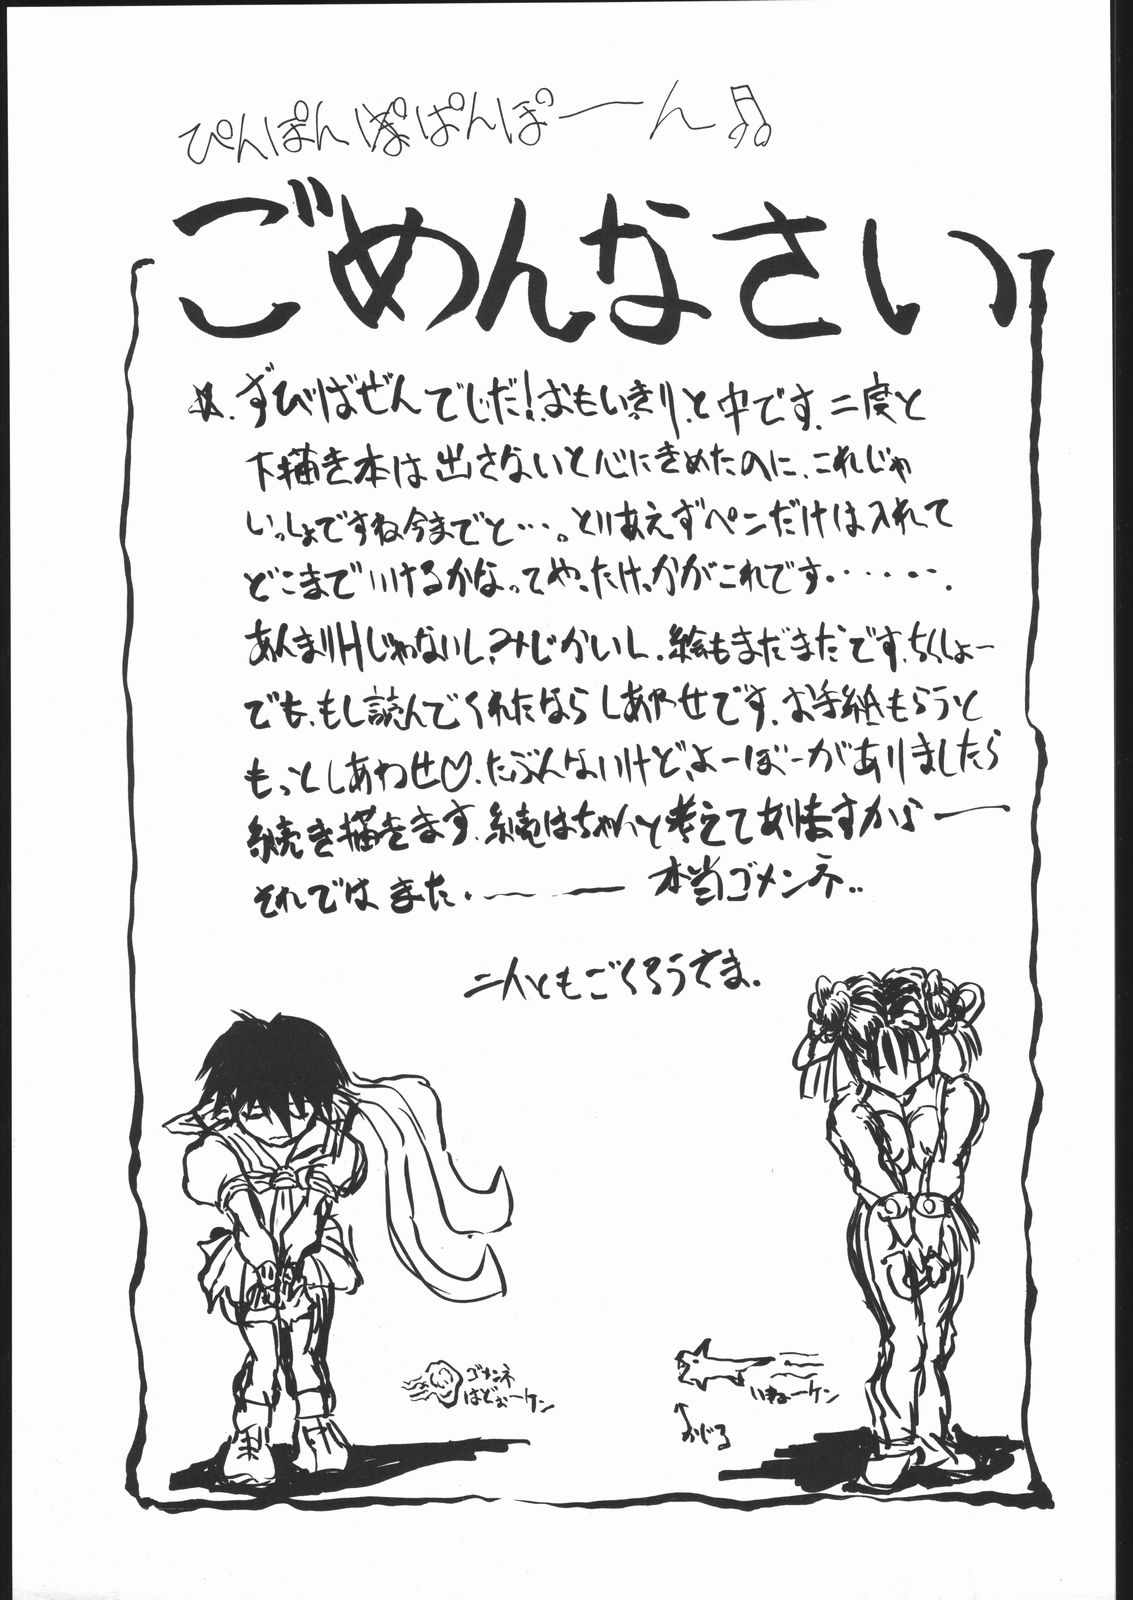 ぴんぽんぱぱんぽーん♫
ごめんなさい
☆.ずびばぜんでじだ!おもいっきり、と中です.二度と
下描き本は出さないと心にきめたのに、これじゃ
いっしょですね今までと・・・。とりあえずペンだけは入れて
どこまでいけるかなってやったけっかがこれです・・・・・・・.
あんまりHじゃないし、みじかいし、絵もまだまだです、ちくしょー
でも、もし読んでくれたなら しあわせです、お手紙もらうと
もっとしあわせ♡、たぶんないけど、よーぼーがありましたら
続き描きます、続はちゃんと考えてありますから ー
それでは また・ー ー 本当ゴメンネ..
二人ともごくろうさま.
ゴメンネ
はどおーケン
いきおーケン
おじろ